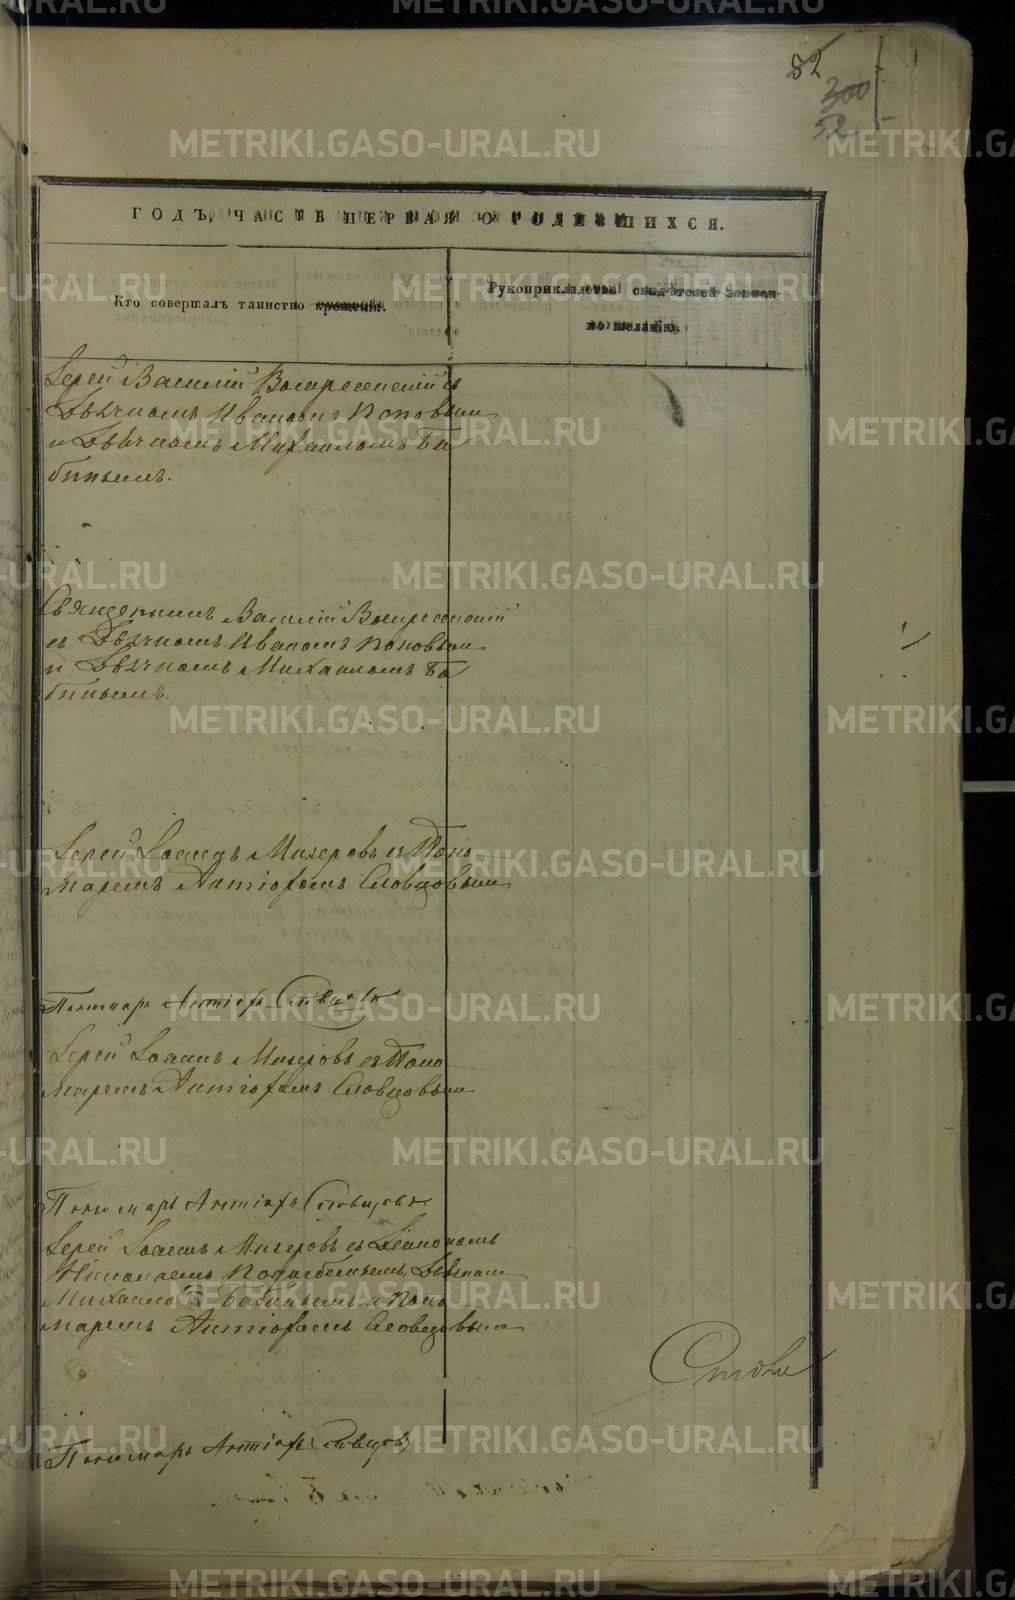 52
300
52
ГОДЪ, ЧАСТЬ ПЕРВАЯ О РОДИВШИХСЯ.
Кто совершалъ таинство крещенія.
Рукоприкладство свидѣтелей записи
по желанію.
Іерей Василій Воскресенскій съ
Дьячкомъ Иваномъ Поповым
и Дьячкомъ Михаиломъ Ба
бинымъ.
Священникъ Василій Воскресенскій
съ Дьячкомъ Иваномъ Поповым
и Дьячкомъ Михаиломъ Ба
бинымъ.
Іерей Іоаннъ Мизеровъ съ Поно
маремъ Антіофомъ Словцовым
Пономарь Антіофъ Словцовъ
Іерей Іоаннъ Мизеровъ съ Поно
маремъ Антіофомъ Словцовым
Пономарь Антіофъ Словцовъ
Іерей Іоаннъ Мизеровъ съ Діакономъ
Николаемъ Дьячкомъ
Михаило Бабинымъ и Поно
маремъ Антіофомъ Словцовым
Пономарь Антіофъ Словцовъ
METRIKI.GASO-URAL.RU